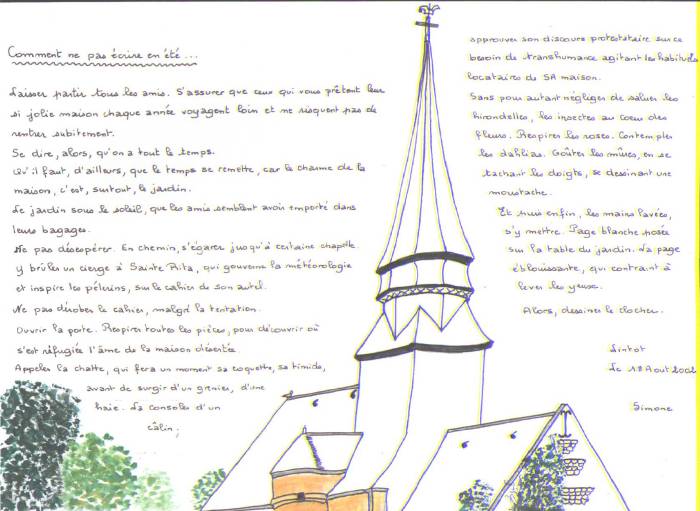 Comment ne pas écrire en été...
Laisser partir tous les amis. S'assurer que ceux qui vous prêtent leur
si jolie maison chaque année voyagent loin et ne risquent pas de
rentrer subitement.
Se dire, alors, qu'on a tout le temps.
Qu'il faut, d'ailleurs, que le temps se remette, car le charme de la
maison, c'est, surtout, le jardin.
Le jardin sous le soleil, que les amis semblent avoir emporté dans
leurs bagages.
Ne pas désespérer. En chemin, s'égarer jusqu'à certaine chapelle.
Y brûler un cierge à Sainte Rita, qui gouverne la météorologie
et inspire les pélerins, sur le cahier de son autel.
Ne pas dérober le cahier, malgré la tentation.
Ouvrir la porte. Respirer toutes les pièces, pour découvrir où
s'est réfugiée l'âme de la maison désertée.
Appeler la chatte, qui fera un moment sa coquette, sa timide,
avant de surgir d'un grenier, d'une
haie. La consoler d'un
câlin,
approuver son discours protestataire sur ce
besoin de transhumance agitant les habituels
locataires de SA maison.
Sans pour autant négliger de saluer les
hirondelles, les insectes au coeur des
fleurs. Respirer les roses. Contempler
les dahlias. Goûter les mûres, en se
tachant les doigts, se dessinant une
moustache.
Et puis enfin, les mains lavées,
s'y mettre. Page blanche posée
sur la table du jardin. La page
éblouissante, qui contraint à
lever les yeux.
Alors, dessiner le clocher.
Lintot
Le 18 Aout 2002
Simone